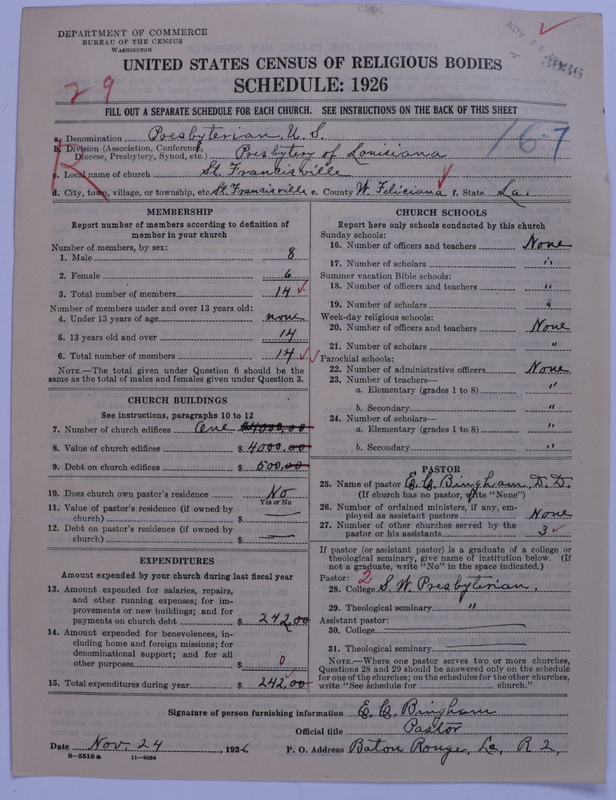 DEPARTMENT OF COMMERCE
BUREAU OF THE CENSUS
WASHINGTON
NOV 26
3036
UNITED STATES CENSUS OF RELIGIOUS BODIES
SCHEDULE: 1926
29
FILL OUT A SEPARATE SCHEDULE FOR EACH CHURCH. SEE INSTRUCTIONS ON THE BACK OF THIS SHEET
16-7
a. Denomination Presbyterian U. S.
b. Division (Association, Conference, Diocese, Presbytery, Synod, etc.) Presbytery of Louisiana
c. Local name of church St. Francisville
d. City, town, village, or township, etc. St. Francisville e. County W. Feliciana f. State La.
R
MEMBERSHIP
Report number of members according to definition of
member in your church
Number of members, by sex:
1. Male 8
2. Female 6
3. Total number of members 14
Number of members under and over 13 years old:
4. Under 13 years of age none
5. 13 years old and over 14
6. Total number of members 14
NOTE.—The total given under Question 6 should be
same as the total of males and females given under Question 3.
CHURCH BUILDINGS
See instructions, paragraphs 10 to 12
7. Number of church edifices One $4000,00
8. Value of church edifices $ 4000.00
9. Debt on church edifices $ 500,00
10. Does church own pastor's residence No
Yes or No
11. Value of pastor's residence (if owned by
church) $ —
12. Debt on pastor's residence (if owned by
church) $ —
EXPENDITURES
Amount expended by your church during last fiscal year
13. Amount expended for salaries, repairs,
and other running expenses; for im-
provements or new buildings; and for
payments on church debt $ 242,00
14. Amount expended for benevolences, in-
cluding home and foreign missions; for
denominational support; and for all
other purposes $ 0
15. Total expenditures during year $ 242,00
CHURCH SCHOOLS
Report here only schools conducted by this church
Sunday schools:
16. Number of officers and teachers None
17. Number of scholars "
Summer vacation Bible schools:
18. Number of officers and teachers "
19. Number of scholars "
Week-day religious schools:
20. Number of officers and teachers None
21. Number of scholars "
Parochial schools:
22. Number of administrative officers None
23. Number of teachers—
a. Elementary (grades 1 to 8) "
b. Secondary "
24. Number of scholars—
a. Elementary (grades 1 to 8) "
b. Secondary "
PASTOR
25. Name of pastor E. C. Bingham, D. D.
(If church has no pastor, write "None")
26. Number of ordained ministers, if any, em-
ployed as assistant pastors None
27. Number of other churches served by the
pastor or his assistants 3
If pastor (or assistant pastor) is a graduate of a college or
theological seminary, give name of institution below. (If
not a graduate, write "No" in the space indicated.)
Pastor: 2
28. College S. W. Presbyterian.
29. Theological seminary "
Assistant pastor:
30. College
31. Theological seminary
NOTE.—Where one pastor serves two or more churches,
Questions 28 and 29 should be answered only on the schedule
for one of the churches; on the schedules for the other churches,
write "See schedule for church."
Signature of person furnishing information E. C. Bingham
Official title Pastor
Date Nov. 24, 1926 P. O. Address Baton Rouge, La, R 2,
8—5518 a 11—9084